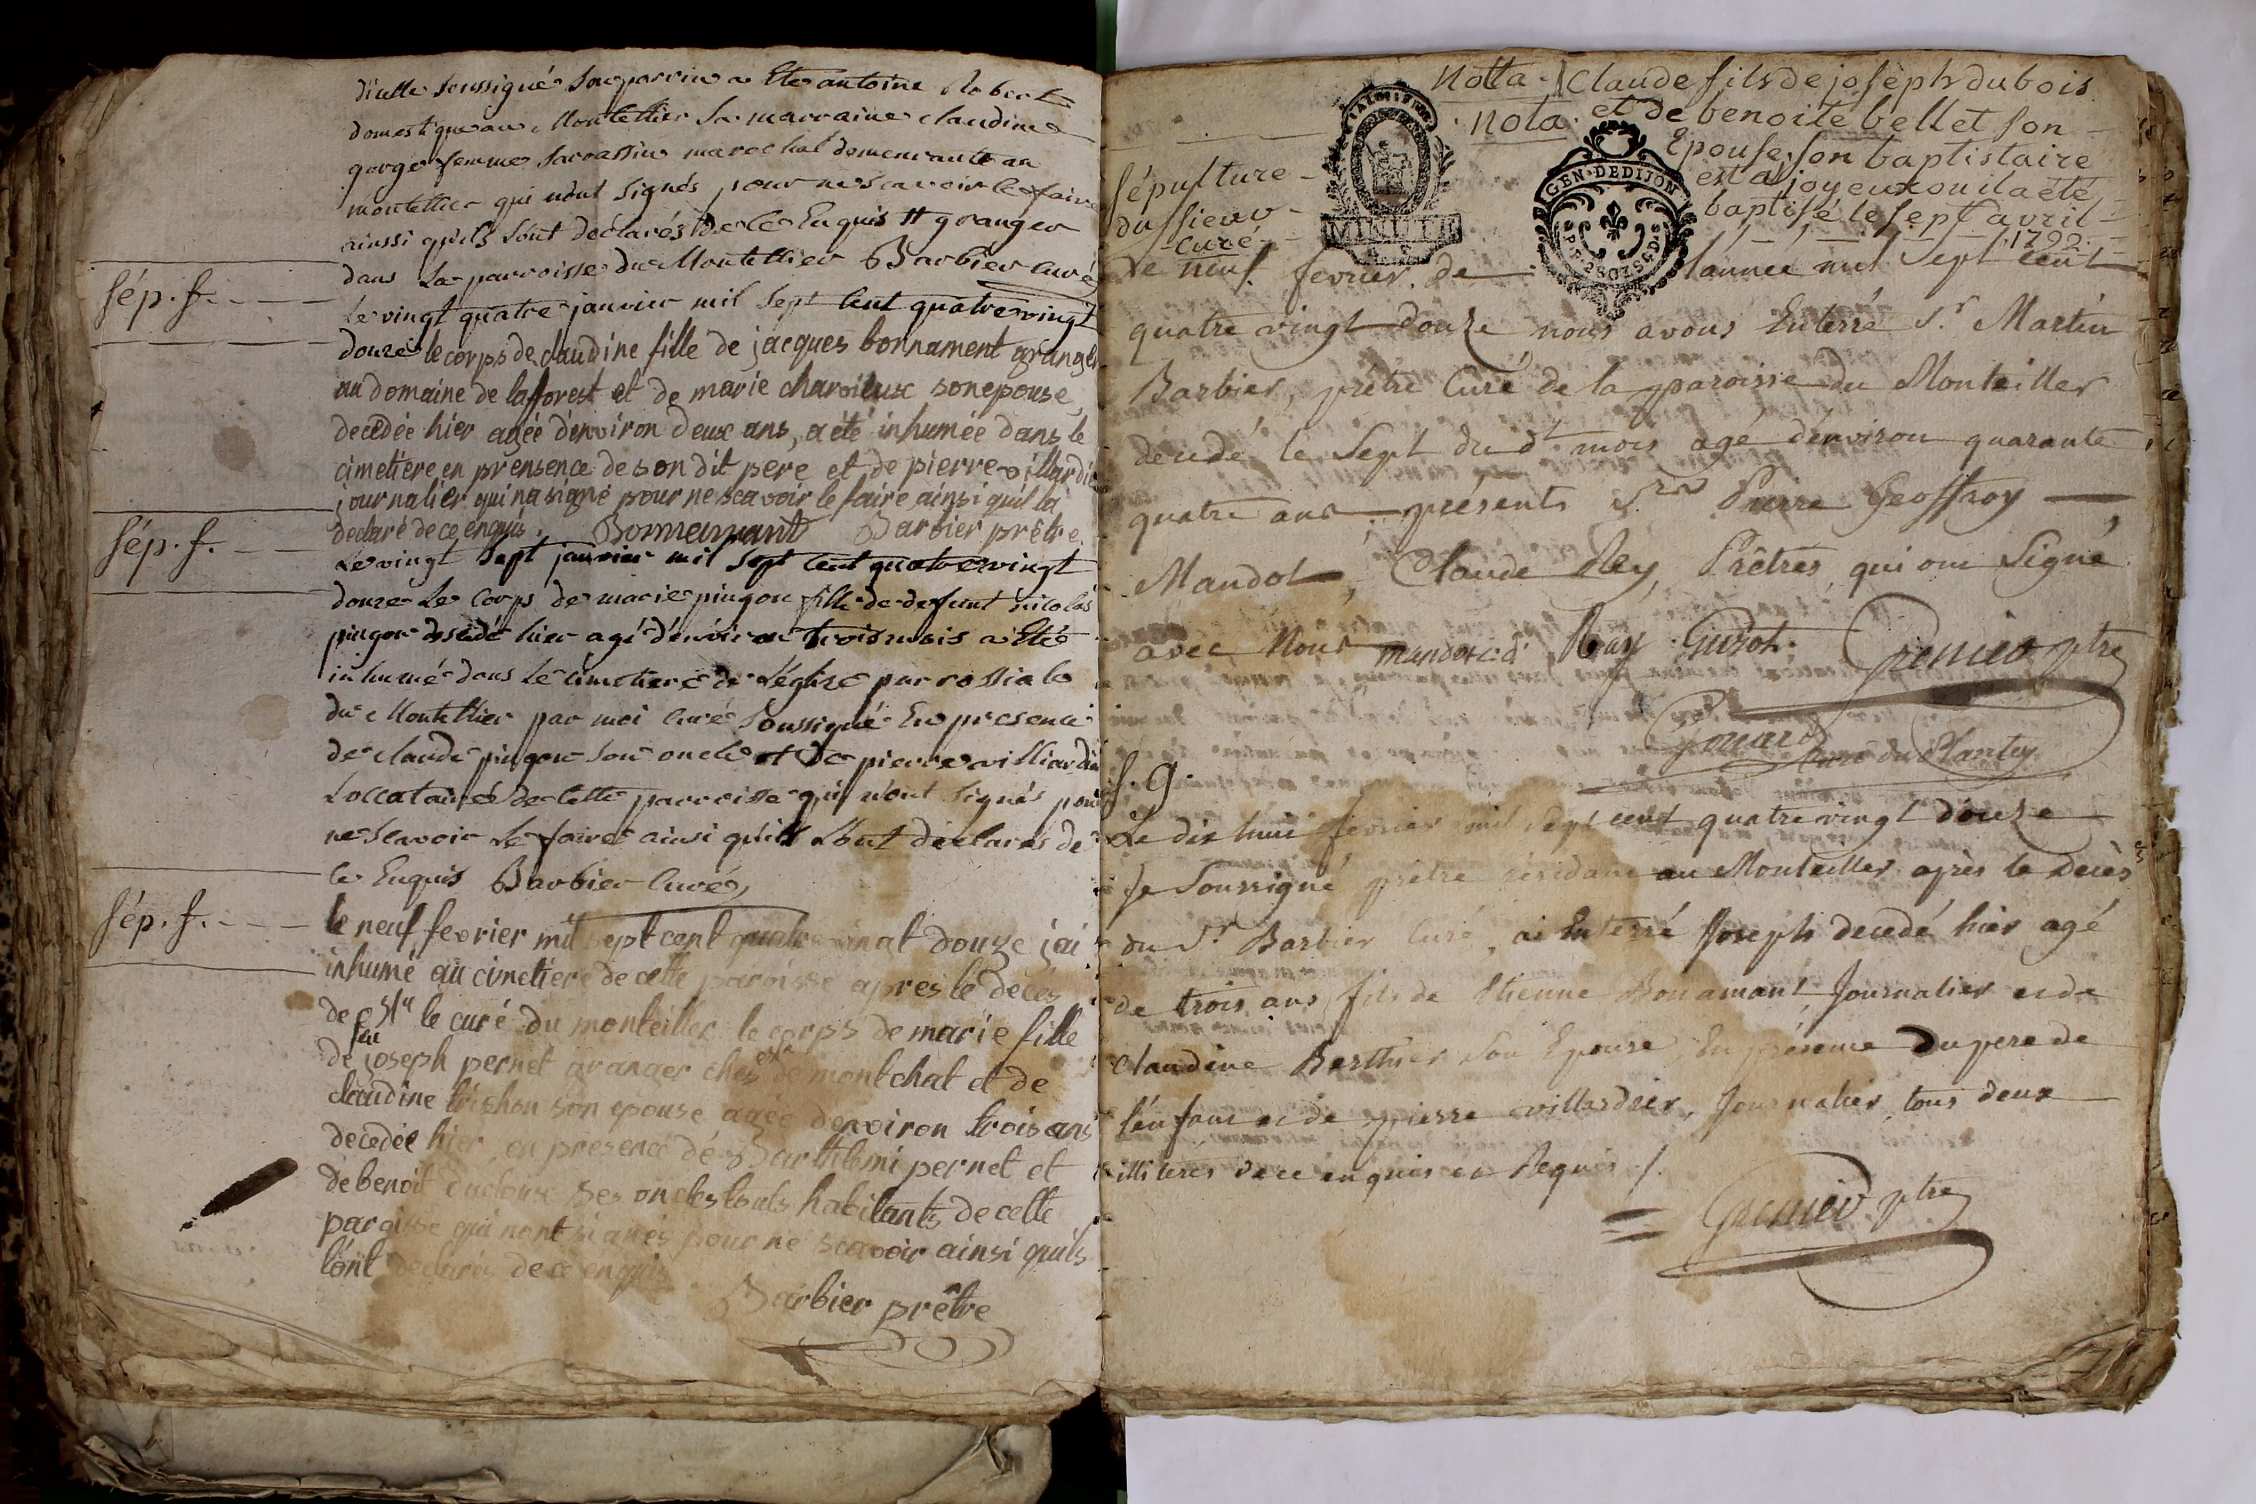 dicelle soussigné son parrin a Eté antoine Robert
domestique au Montellier Sa marraine claudine
gorge femme sarrassin marechal demeurante au
montellier qui n'ont signés pour ne scavoir le faire
ainssi quils l'ont déclarés de ce Enquis # granger
dans la parroisse du Montellier Barbier curé
sép. f.
Le vingt quatre janvier mil sept cent quatre vingt
douze le corps de claudine fille de jacques bornament granger
au domaine de lafforest et de marie charvieux son epouse,
decedée hier agée d'environ deux ans, a été inhumée dans le
cimetiere en prensence de son dit pere et de pierre villardier
journalier qui na signé pour ne scavoir le faire ainsi quil la
declaré de ce enquis. Bornamant Barbier prêtre.
sép. f.
Le vingt sept janvier mil sept cent quatre vingt
douze Le Corps de marie pingon fille de defunt nicolas
pingon desédé hier agé d'environ trois mois a Eté
inhumé dans Le cimetiere de L'églize parrossiale
du Montellier par moi curé soussigné En presence
de claude pingon son oncle et de pierre villiardier
Loccataires de cette parroisse qui n'ont signés pour
ne scavoir Le faire ainsi quils L'ont déclarés de
ce Enquis Barbier curé,
sép. f.
le neuf fevrier mil sept cent quatre vingt douze jai
inhumé au cimetiere de cette paroisse apres le décés
de Mr le curé du monteiller le corps de marie fille
de feu joseph pernet granger ches de montchat et de
claudine trichon son epouse agée denviron trois ans
decedée hier en presence de Barthlemi pernet et
de benoit ses oncles touts habitants de cette
paroisse qui nont signés pour ne scavoir ainsi quils
lont declarés de ce enquis
Barbier prêtre
Notta. Claude fils de joseph dubois
Nota. et de benoite bellet son
Epouse, son baptistaire
est a joyeux ou il a été
baptisé le sept avril
1792.
MINUTE
GEN. DE DIJON
sépulture
du sieur
curé
Le neuf fevrier de l'année mil sept cent
quatre vingt douze nous avons Enterré Sr. Martin
Barbier, prêtre Curé de la paroisse du Monteiller
décédé le Sept du dt mois agé d'environ quarante
quatre ans presents Srs Pierre Geoffroy
Mandot, Claude Rey Prêtres, qui ont Signé
avec Nous mandot c.d. Rey Guyot. Grenier ptre
curé du Plantey
s. g.
Le dix huit fevrier mil sept cent quatre vingt douze
Je Soussigné prêtre résidant au Monteiller après le decès
du Sr. Barbier Curé, ai Enterré Joseph decedé hier agé
de trois ans, fils de Etienne Bonamant Journalier et de
claudine Berthier son Epouse, En présence du pere de
l'enfant et de pierre villardier, Journalier, tous deux
illiterés de ce enquis et Requis /.
Grenier ptre